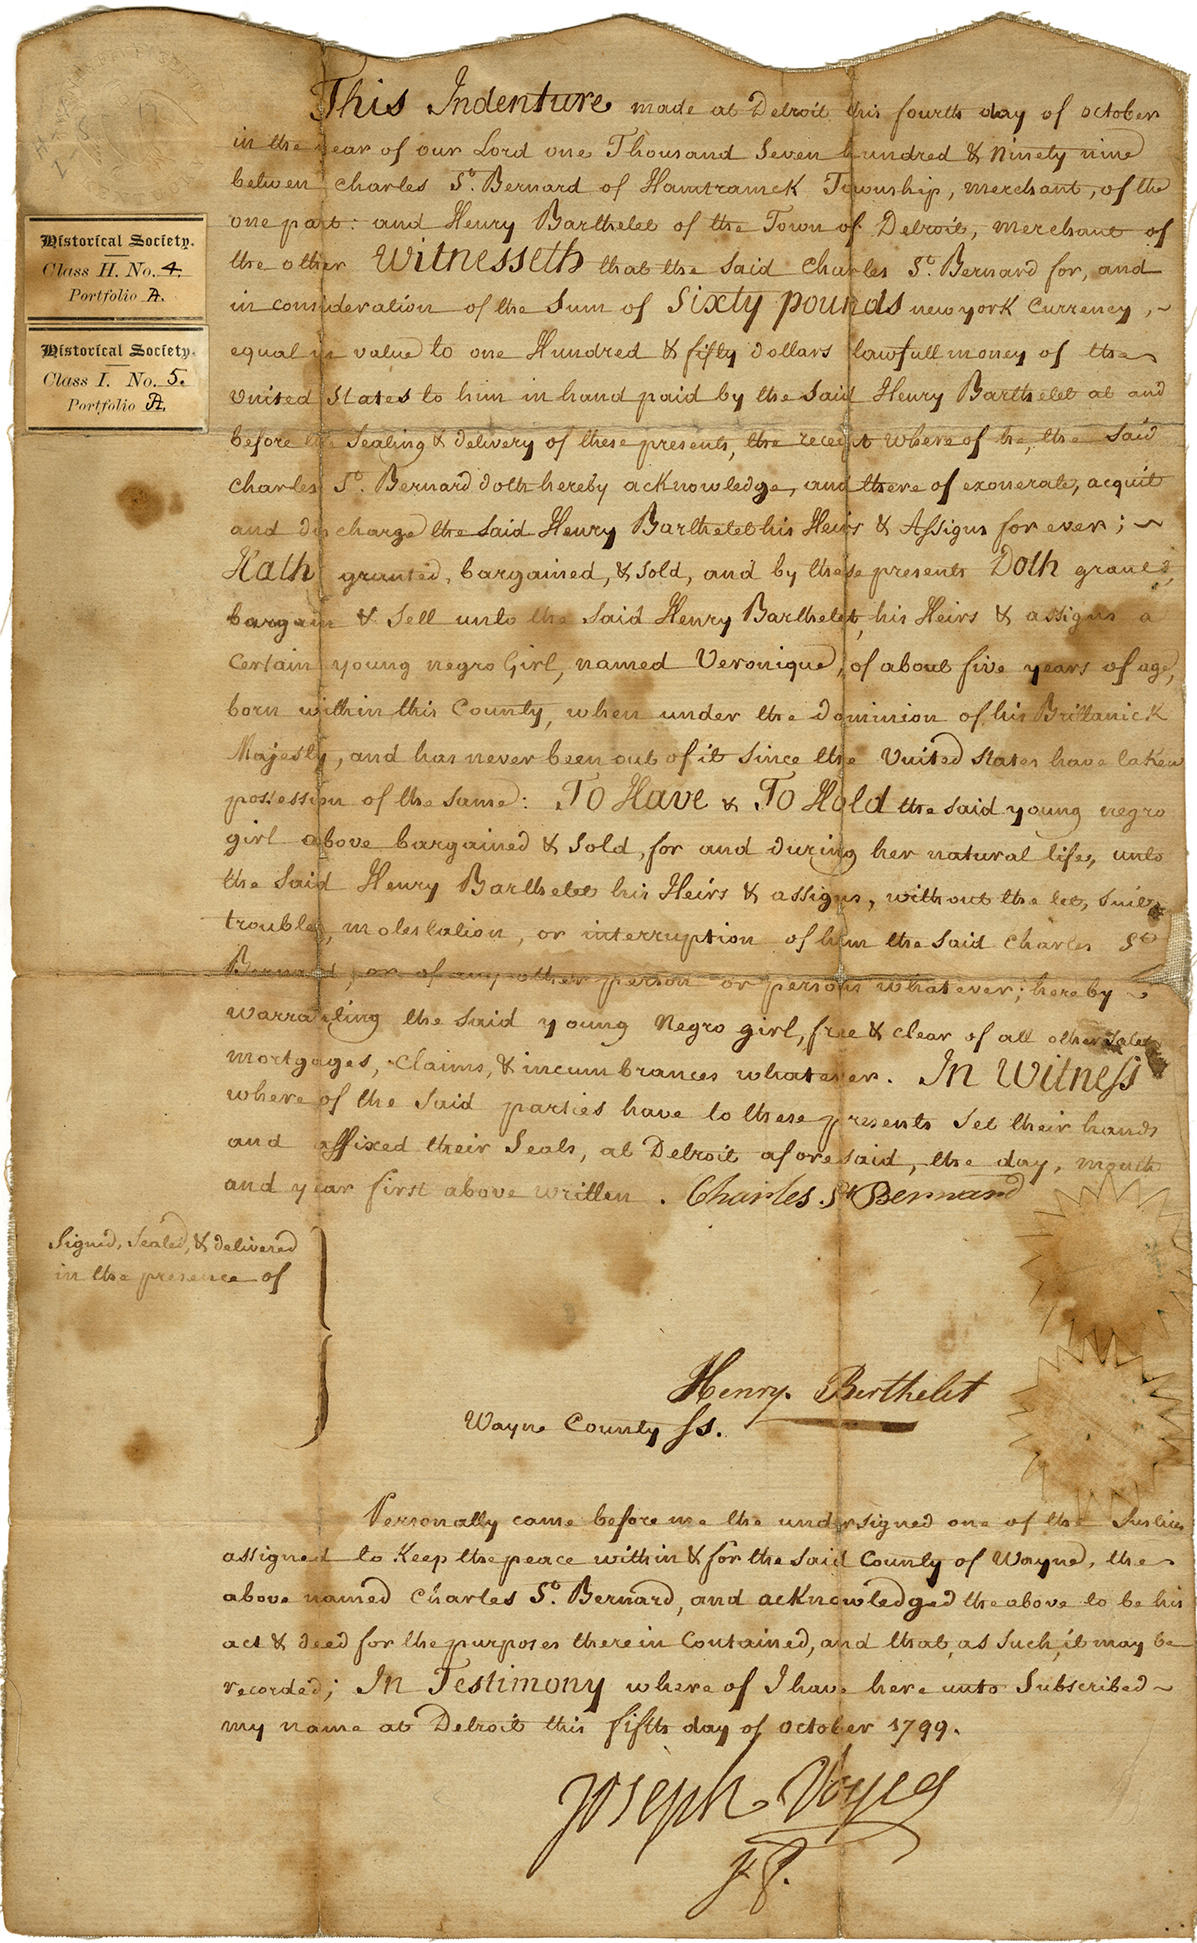 Historical Society.
Class H. No. 4.
Portfolio A.
Historical Society.
Class I. No. 5.
Portfolio A.
This Indenture made at Detroit this fourth day of october
in the year of our Lord one Thousand Seven hundred & Ninety nine
betwen Charles St. Bernard of Hamtramck Township, merchant, of the
one part: and Henry Barthelet of the Town of Detroit, merchant of
the other Witnesseth that the Said Charles St. Bernard for, and
in consideration of the Sum of Sixty pounds newyork Currency, ~
equal in value to one Hundred & fifty dollars lawfull money of the
United States to him in hand paid by the Said Henry Barthelet at and
before the Sealing & delivery of these presents, the receipt where of he, the Said
Charles St. Bernard doth hereby acknowledge, and there of exonerate, acquit
and discharge the Said Henry Barthelet his Heirs & Assigns for ever; ~
Hath granted, bargained, & Sold, and by these presents Doth grant,
bargain & Sell unto the Said Henry Barthelet, his Heirs & assigns a
Certain young negro Girl, named Veronique, of about five years of age,
born within this County, when under the Dominion of his Brittanick
Majesty, and has never been out of it Since the United States have taken
possession of the Same: To Have & To Hold the Said young negro
girl above bargained & Sold, for and during her natural life, unto
the Said Henry Barthelet his Heirs & assigns, without the let, Suit,
trouble, molestation, or interruption of him the Said Charles St
Bernard, or of any other person or persons whatever; hereby ~
warranting the Said young Negro girl, free & clear of all other Sales
mortgages, Claims, & incumbrances whatever. In Witness
where of the Said parties have to these presents Set their hands
and affixed their Seals, at Detroit aforesaid, the day, month
and year first above written. Charles St Bernard
Signed, Sealed, & delivered
in the presence of
Henry Berthelet
Wayne County Ss.
Personally came before me the undersigned one of the Justices
assigned to Keep the peace within & for the Said County of Wayne, the
above named Charles St. Bernard, and acknowledged the above to be his
act & deed for the purposes therein Contained, and that, as Such, it may be
recorded; In Testimony where of I have here unto Subscribed ~
my name at Detroit this fifth day of October 1799.
Joseph Voyez
J. P.